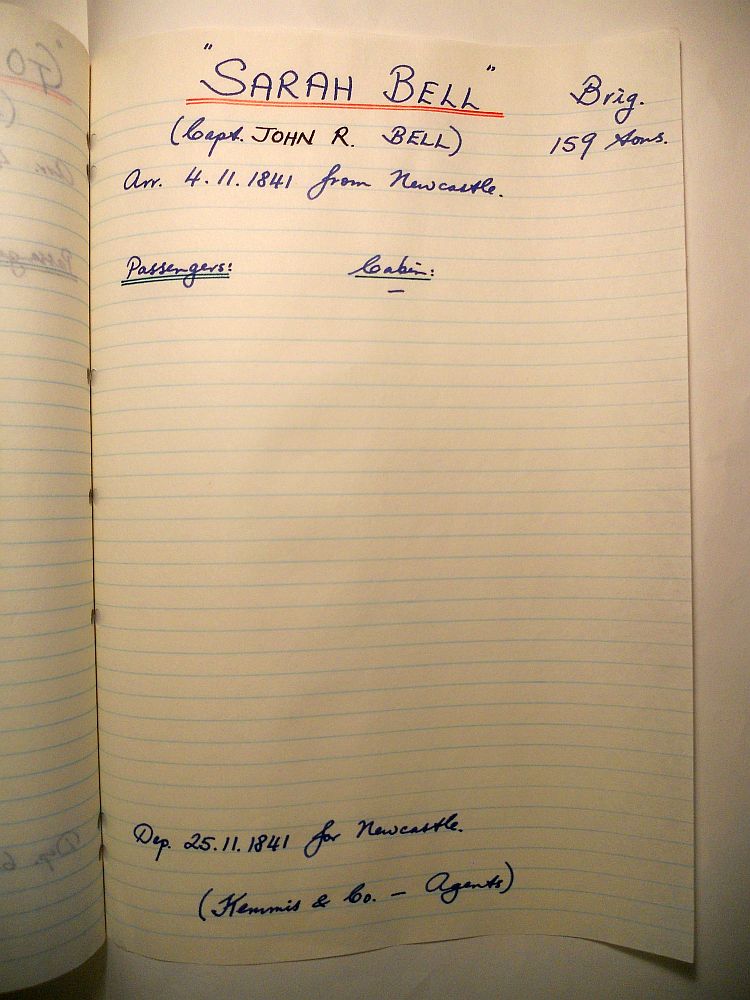 "SARAH BELL" Brig.
(Capt. JOHN R. BELL) 159 tons.
Arr. 4.11.1841 from Newcastle.
Passengers: Cabin:
—
Dep. 25.11.1841 for Newcastle.
(Kemmis & Co. — Agents)